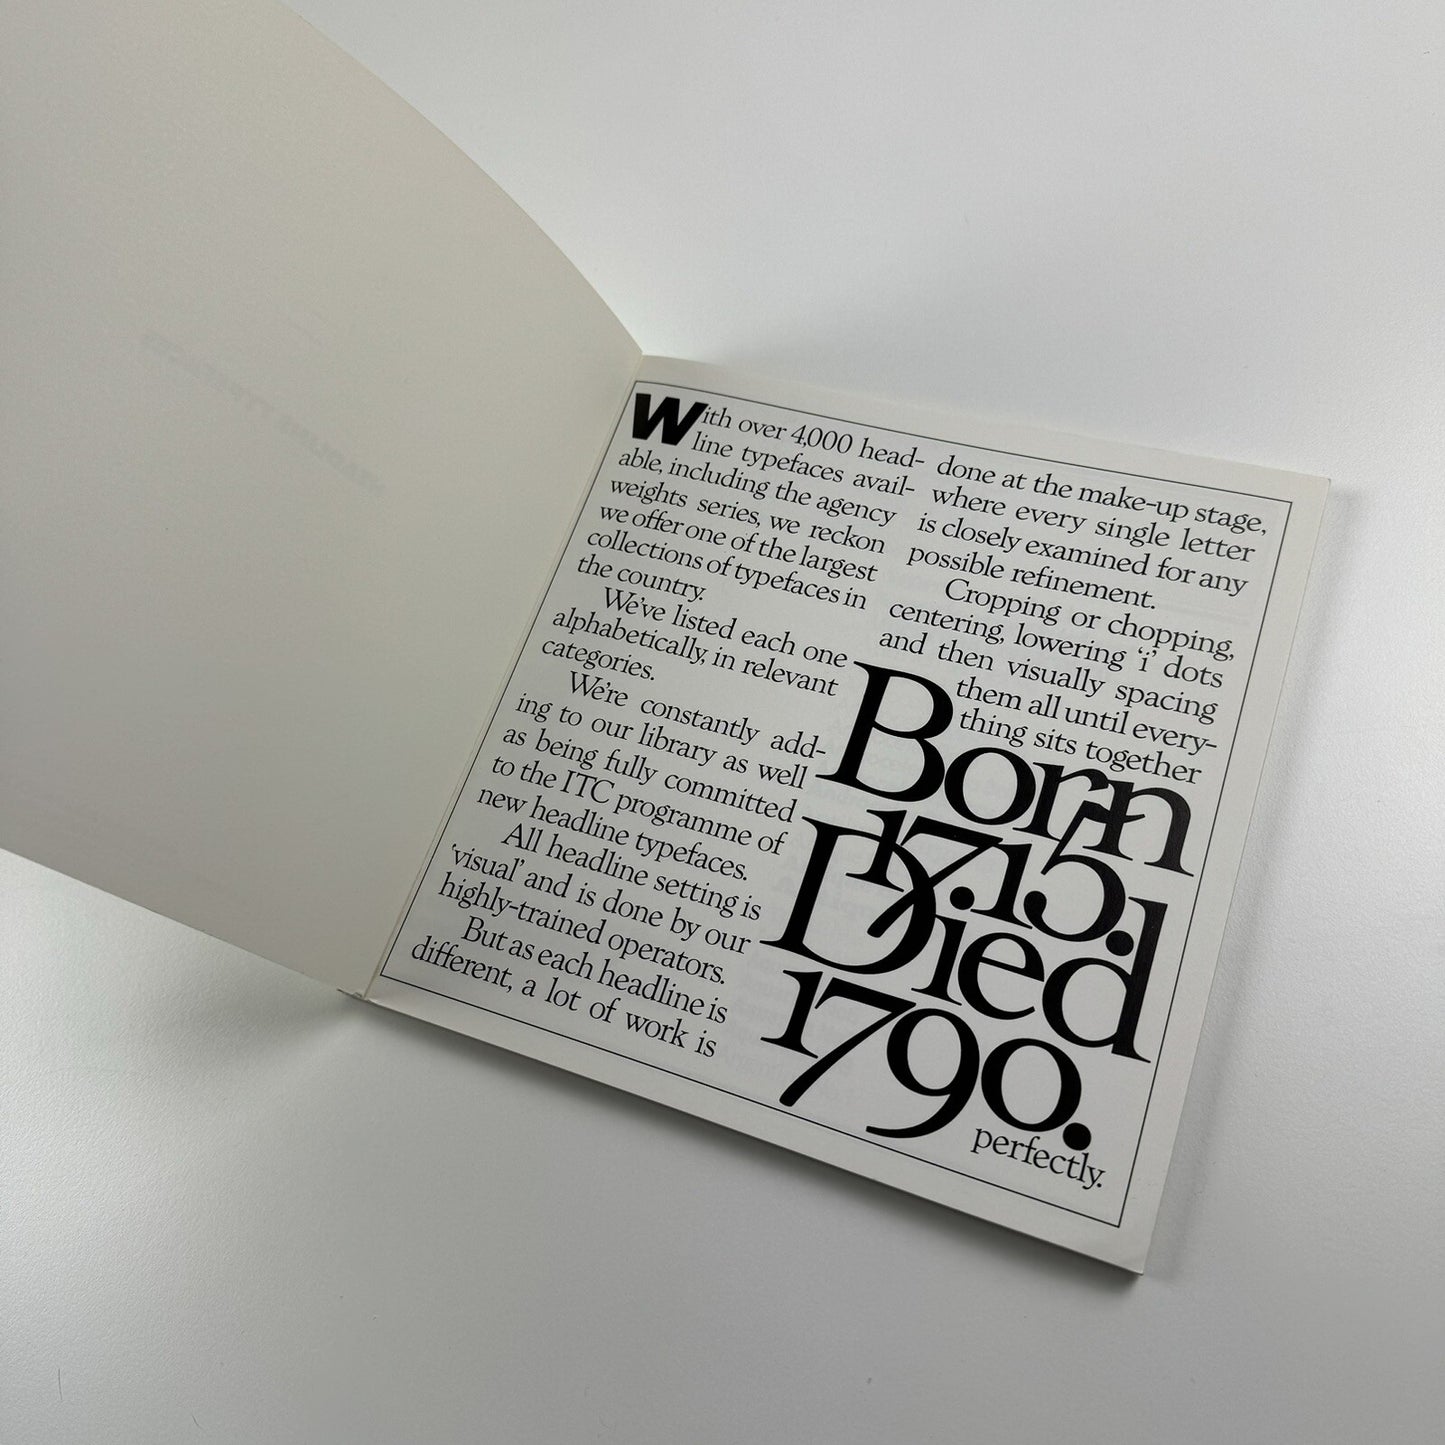 With over 4,000 head-
line typefaces avail-
able, including the agency
weights series, we reckon
we offer one of the largest
collections of typefaces in
the country.
We've listed each one
alphabetically, in relevant
categories.
We're constantly add-
ing to our library as well
as being fully committed
to the ITC programme of
new headline typefaces.
All headline setting is
'visual' and is done by our
highly-trained operators.
But as each headline is
different, a lot of work is
done at the make-up stage,
where every single letter
is closely examined for any
possible refinement.
Cropping or chopping,
centering, lowering 'i' dots
and then visually spacing
them all until every-
thing sits together
Born
17.15.
Died
1790.
perfectly.